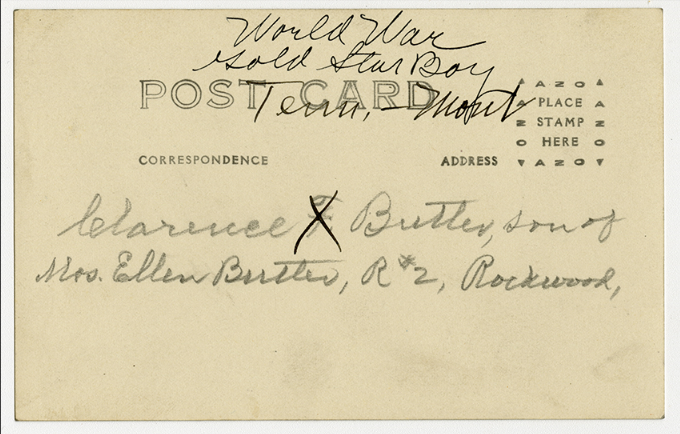 World War
Gold Star Boy
Tenn. - Mont
POST CARD
AZO
PLACE
STAMP
HERE
AZO
CORRESPONDENCE
ADDRESS
Clarence F. Butler, son of
Mrs. Ellen Butler, R #2, Rockwood,